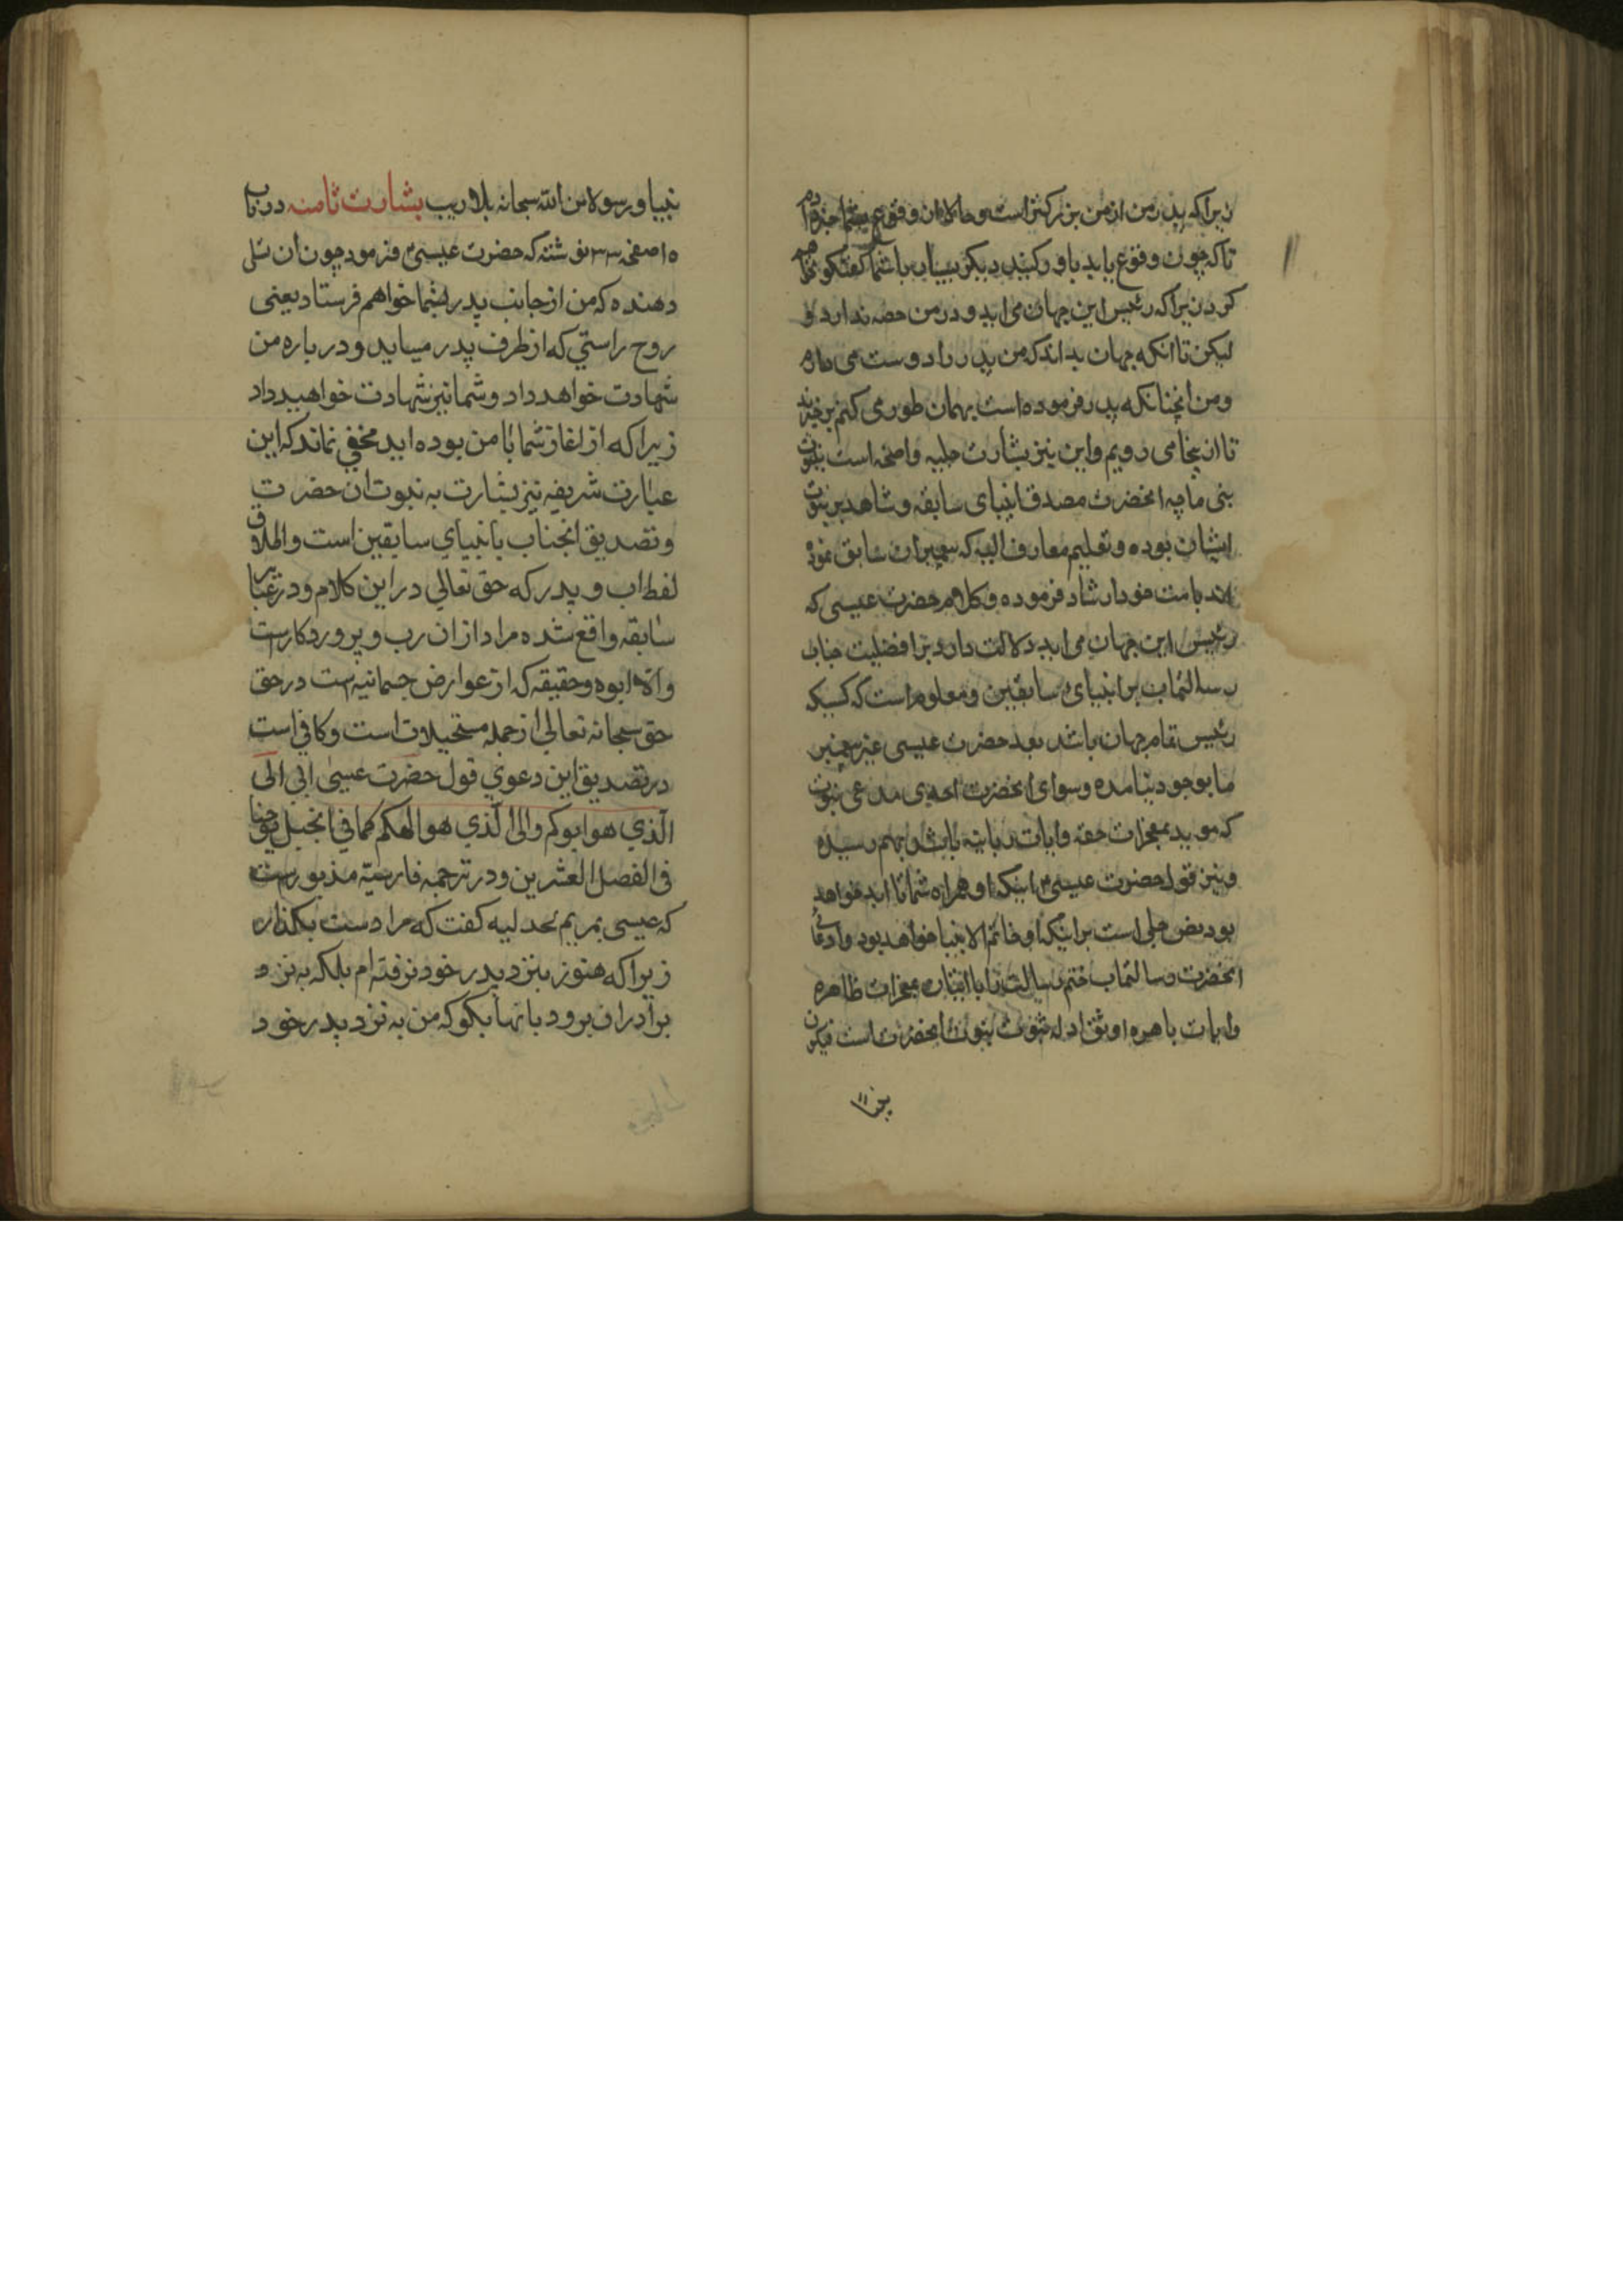 زیرا که پدر من از من بزرکتر است و حالا از ان وقوع بشما خبر داده ام
تا که چون وقوع یابد باور کنید دیکر بسیار با شما کفتکو نخواهم
کرد زیرا که رئیس این جهان می اید و در من حصه ندارد و
لیکن تا انکه جهان بداند که من پدر را دوست می دارم
و من انچنانکه پدر فرموده است بهمان طور می کنم برخیزید
تا از ینجا می رویم و این نیز بشارت جلیه واضحه است بنبوت
نبی ما چه انحضرت مصدق انبیای سابقه و شاهد بر نبوت
ایشان بوده و تعلیم معارف الهیه که پیمبران سابق نموده
اند بامت خود ارشاد فرموده و کلام حضرت عیسی که
رئیس این جهان می اید دلالت دارد بر افضلیت جناب
رسالتماب بر انبیای سابقین و معلوم است که کسیکه
رئیس تمام جهان باشد بعد حضرت عیسی غیر پیغمبر
ما بوجود نیامده و سوای انحضرت احدی مدعی نبوت
که موید بمعجزات حقه و ایات ربانیه باشد بهم رسیده
و نیز قول حضرت عیسی اینکه او همراه شما تا ابد خواهد
بود نص جلی است بر اینکه او خاتم الانبیا خواهد بود و ادعای
انحضرت رسالتماب ختم رسالت را با اتیان معجزات ظاهره
و ایات باهره اوثق ادله ثبوت نبوت انحضرت است فیکون
نبیا
نبیا و رسولا من الله سبحانه بلا ریب بشارت ثامنه در باب
۱۵ صفحه ۳۳ نوشته که حضرت عیسی فرمود چون ان تسلی
دهنده که من از جانب پدر بشما خواهم فرستاد یعنی
روح راستي که از طرف پدر میاید و در باره من
شهادت خواهد داد و شما نیز شهادت خواهید داد
زیرا که از اغاز شما با من بوده اید مخفي نماند که این
عبارت شریفه نیز بشارت به نبوت ان حضرت
و تصدیق انجناب با نبیاي سابقین است و اطلاق
لفظ اب و پدر که حق تعالي در این کلام و در عبارت
سابقه واقع شده مراد از ان رب و پروردکار است
والا ابوه و حقیقه که از عوارض جسمانیه است در حق
حق سبحانه تعالي از جمله مستحیلات است و کافي است
در تصدیق این دعوي قول حضرت عیسی انی الی
الذي هو ابوکم والی الذي هو الهکم کما في انجیل یوحنا
في الفصل العشرین و در ترجمه فارسیه مذبور است
که عیسی بمریم مجدلیه کفت که مرا دست بکذار
زیرا که هنوز بنزد پدر خود نرفته ام بلکه به نزد
برادران برو و بانها بکو که من به نزد پدر خود